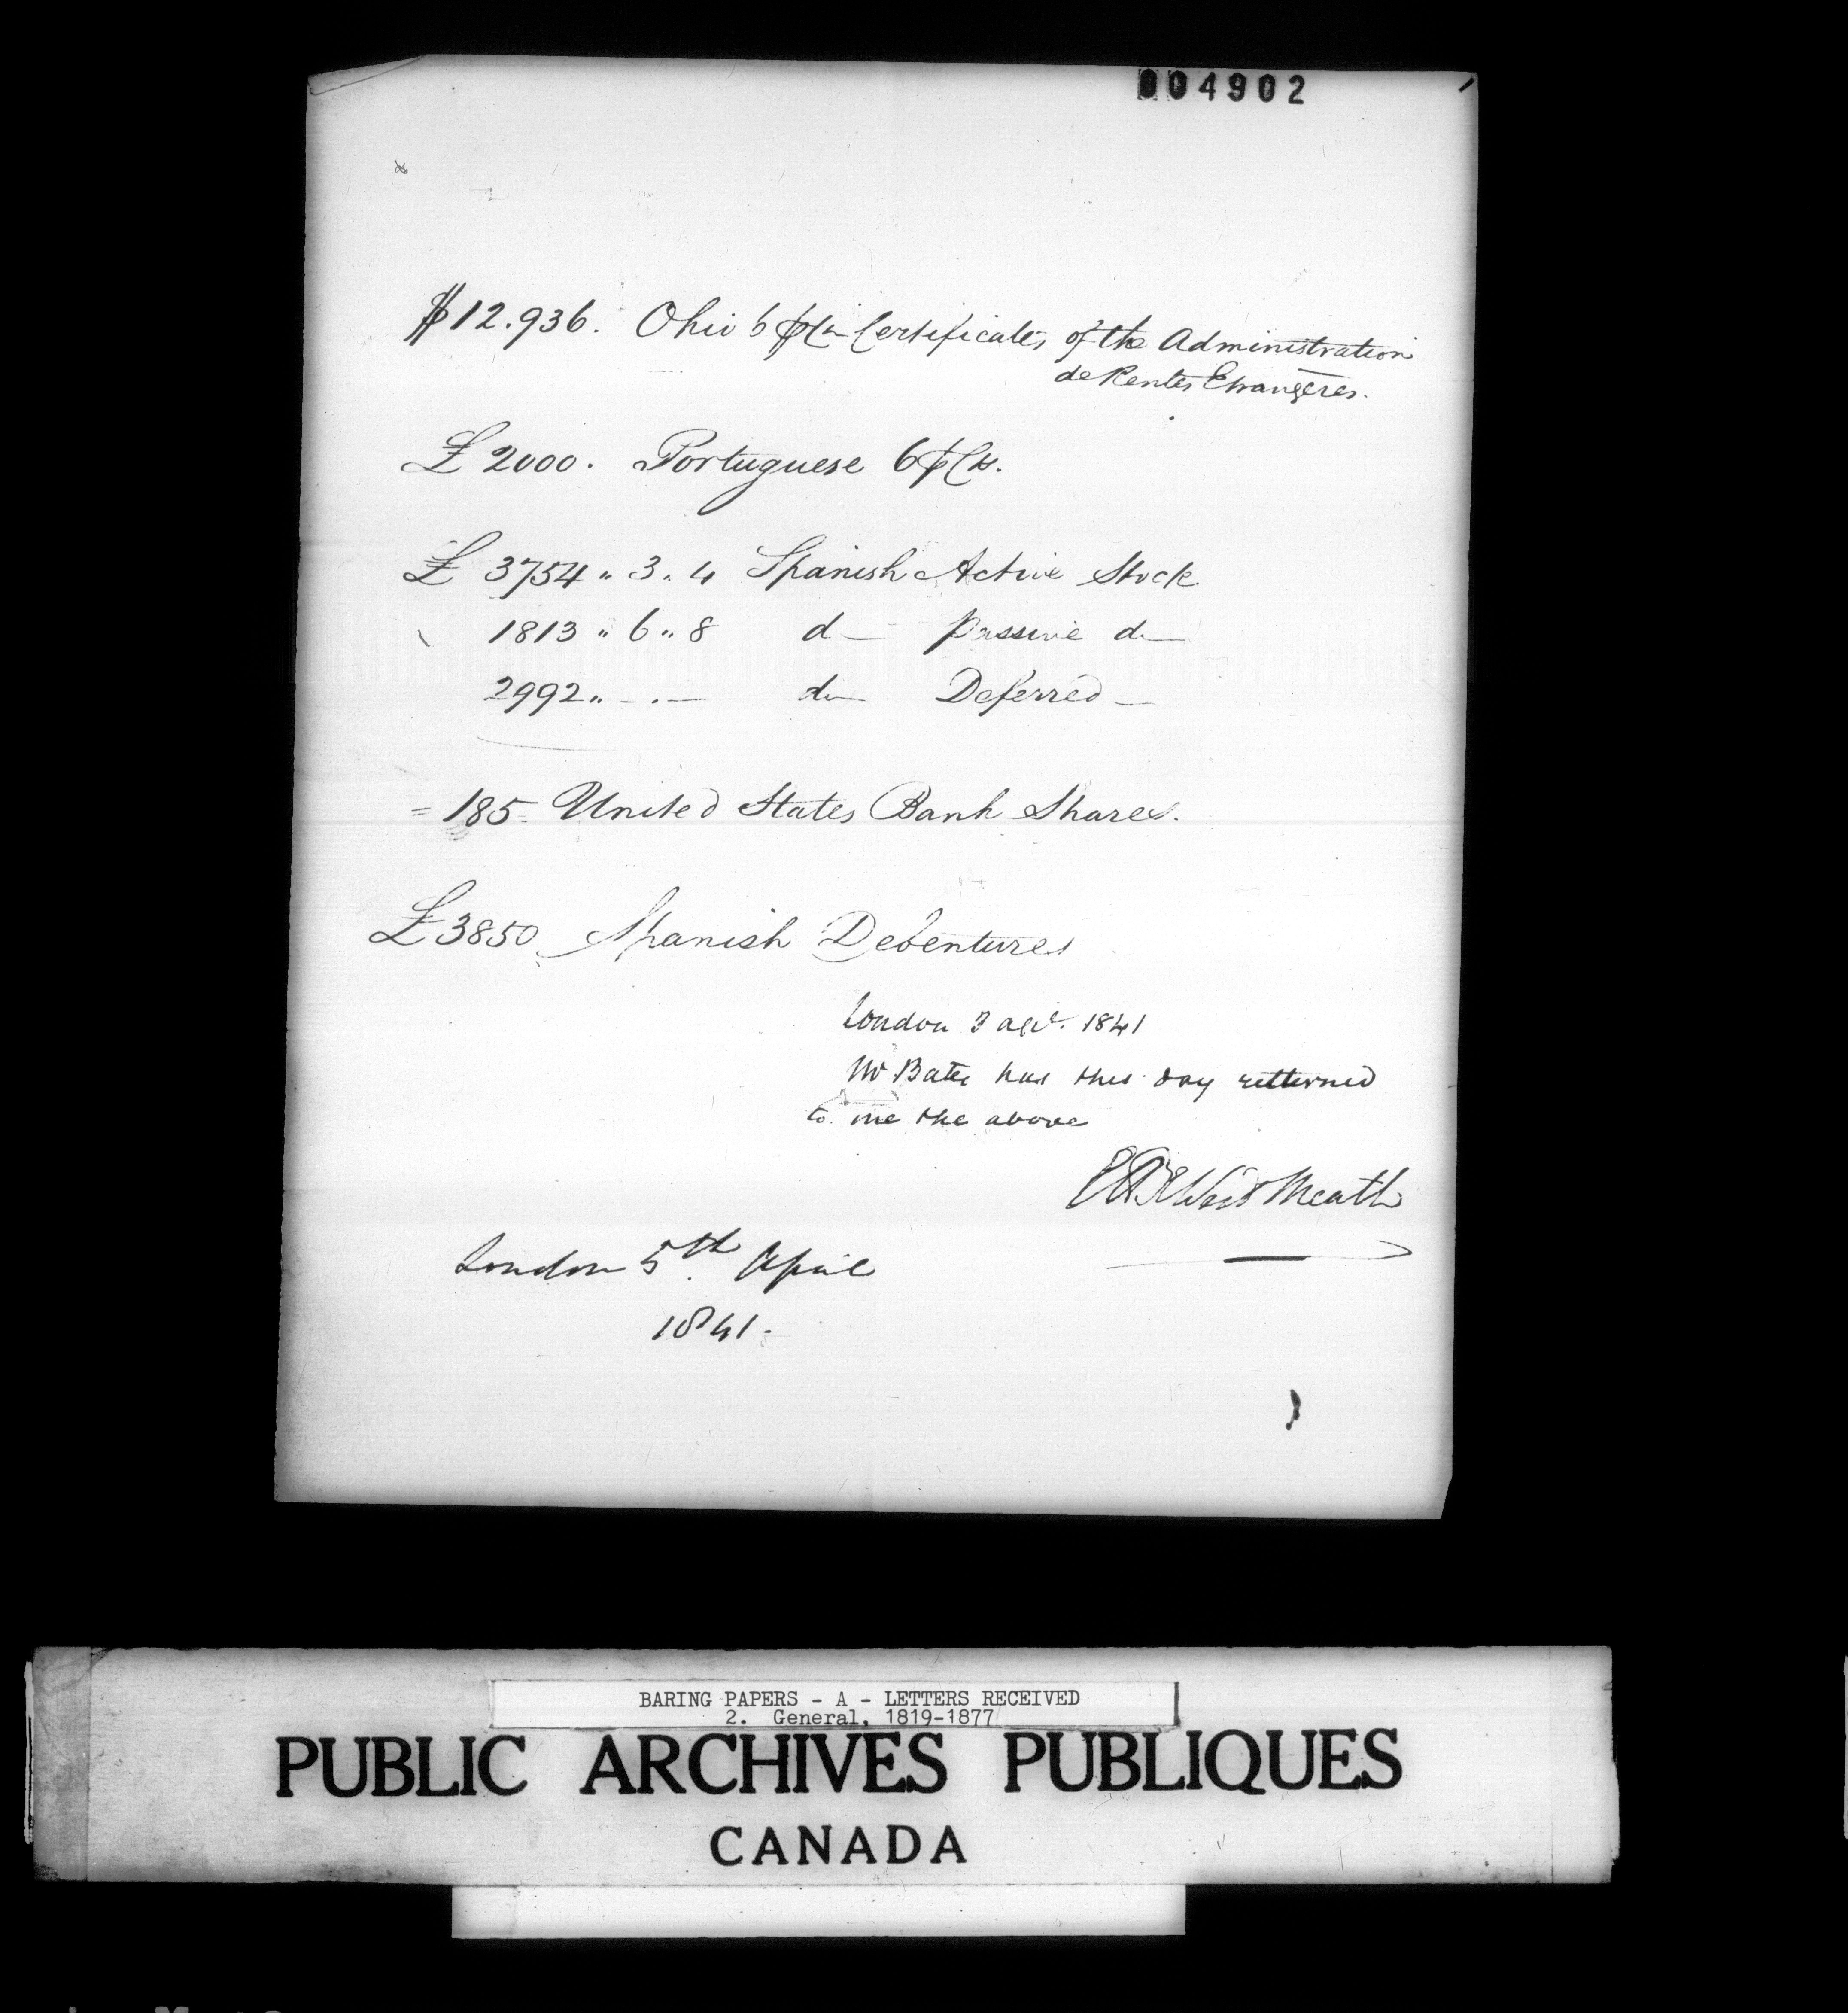 004902
$12.936. Ohio 6 p Ct Certificates of the Administration
de Rentes Etrangères.
£2000. Portuguese 6 p Ct.
£ 3754 " 3 " 4 Spanish Active Stock
1813 " 6 " 8 do Passive do
2992 " - . - do Deferred —
= 185 - United States Bank Shares.
£3850 Spanish Debentures
London 3 apl. 1841
Mr Bates has this day retterned
to me the above
West Meath
London 5th April
1841.
BARING PAPERS - A - LETTERS RECEIVED
2. General, 1819-1877
PUBLIC ARCHIVES PUBLIQUES
CANADA